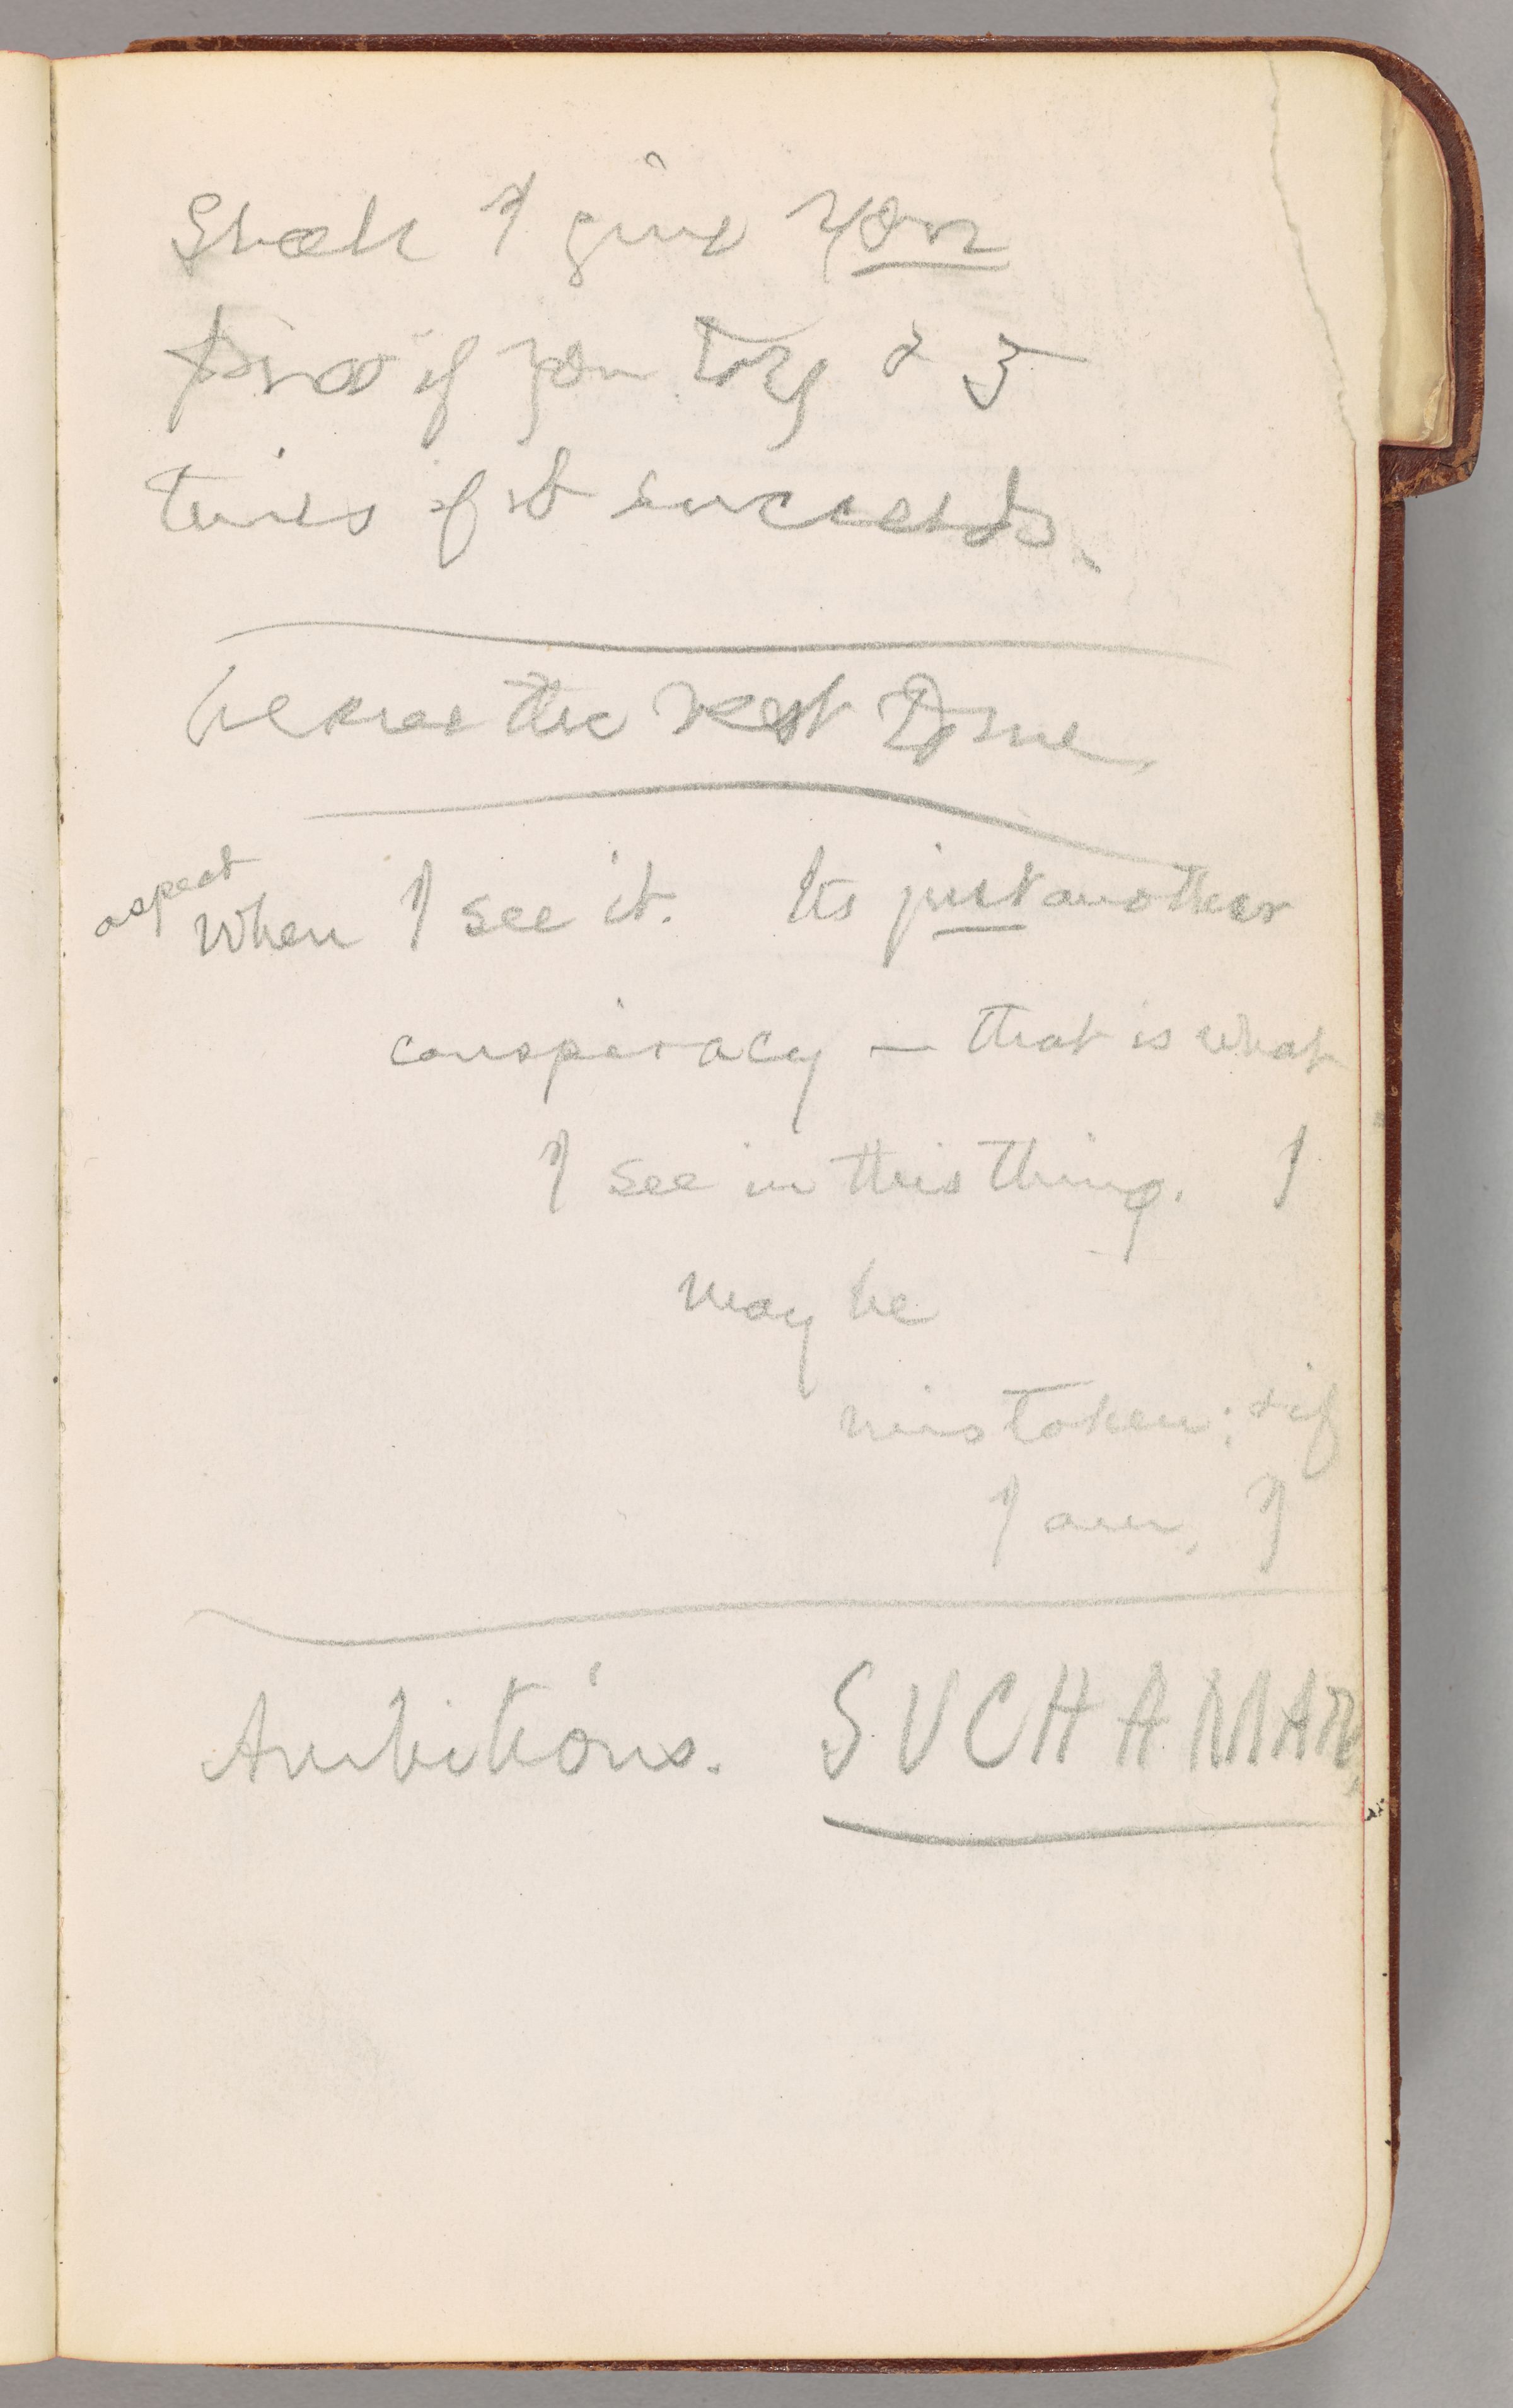 Shall I give you
if you try & 3
times if it succeeds.
the next time
aspect
When I see it. Its just another
conspiracy — that is what
I see in this thing. I
may be
mistaken; & if
I am, I
Ambitions. SUCH A MAN